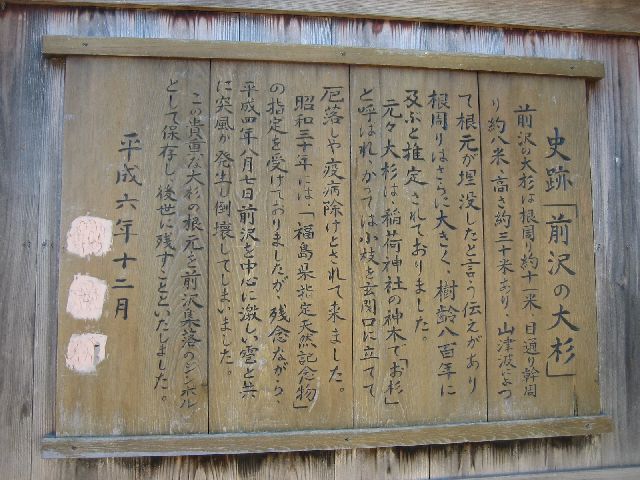 史跡「前沢の大杉」
前沢の大杉は根周り約十一米、目通り幹周
り約八米、高さ約三十米あり、山津波によっ
て根元が埋没したと言う伝えがあり
根周りはさらに大きく、樹齢八百年に
及ぶと推定されておりました。
元々大杉は、稲荷神社の神木で「お杉」
と呼ばれ、かつては小枝を玄関口に立てて
厄落や疫病除けとされて来ました。
昭和三十年には「福島県指定天然記念物」
の指定を受けておりましたが、残念ながら、
平成四年八月七日前沢を中心に激しい雹と共
に突風が発生し倒壊してしまいました。
この貴重な大杉の根元を前沢集落のシンボル
として保存し、後世に残すことといたしました。
平成六年十二月